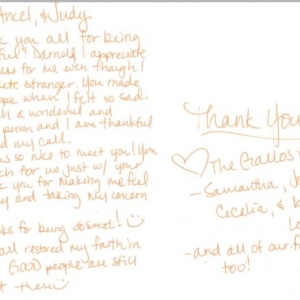 ncel, & Judy
k you all for being
ful! Darnell I appreciate
ess for me even though I
ete stranger. You made
ope when I felt so sad.
h a wonderful and
person and I am thankful
d my call.
as so nice to meet you! You
ch for us just w/ your
k you for making me feel
y and taking my concern
ks for being so sweet!
all restored my faith in
(good) people are still
t there
Thank You
The Gallos
- Samantha, Jo
Cecelia, & K
Lo
- and all of our f
too!